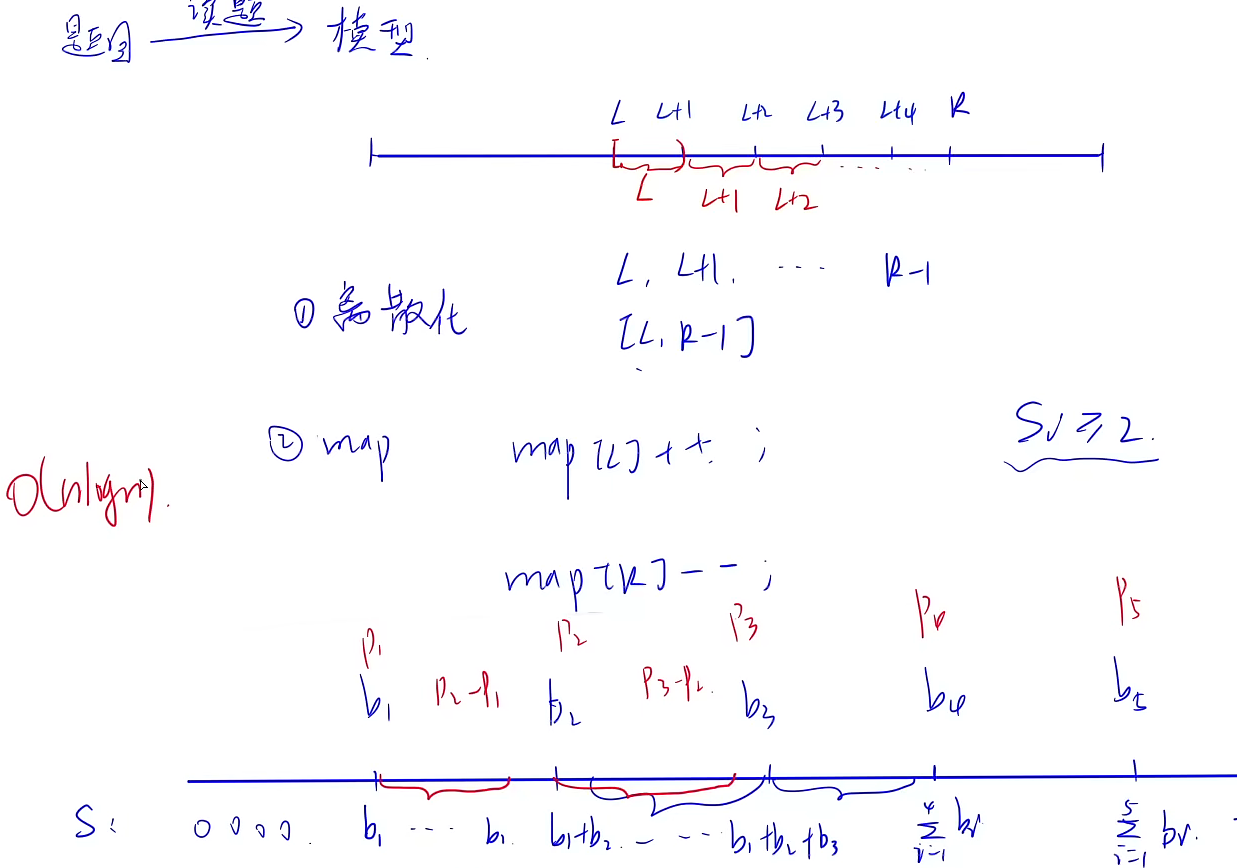 题目 读题 模型.
L L+1 L+2 L+3 L+4 R
L L+1 L+2 ....
L, L+1, ... R-1
① 离散化
[L, R-1]
② map map[L]++; Si ≥ 2.
O(nlogn).
map[R]--;
P1 P2 P3 P4 P5
b1 P2-P1 b2 P3-P2. b3 b4 b5
S: 0 0 0 0. b1 ... b1. b1+b2. ... b1+b2+b3 4∑i=1 bi 5∑i=1 bi.